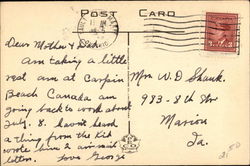 POST CARD
Dear Mother & Dad.
am taking a little
real rest at Campain
Beach Canada am
going back to work about
July. 8. havn't heard
a thing from the Kid
wrote him 2 air-mail
letters.
Love George
Mrs W. D Shank.
983 - 8th Str
Marion
Ia.